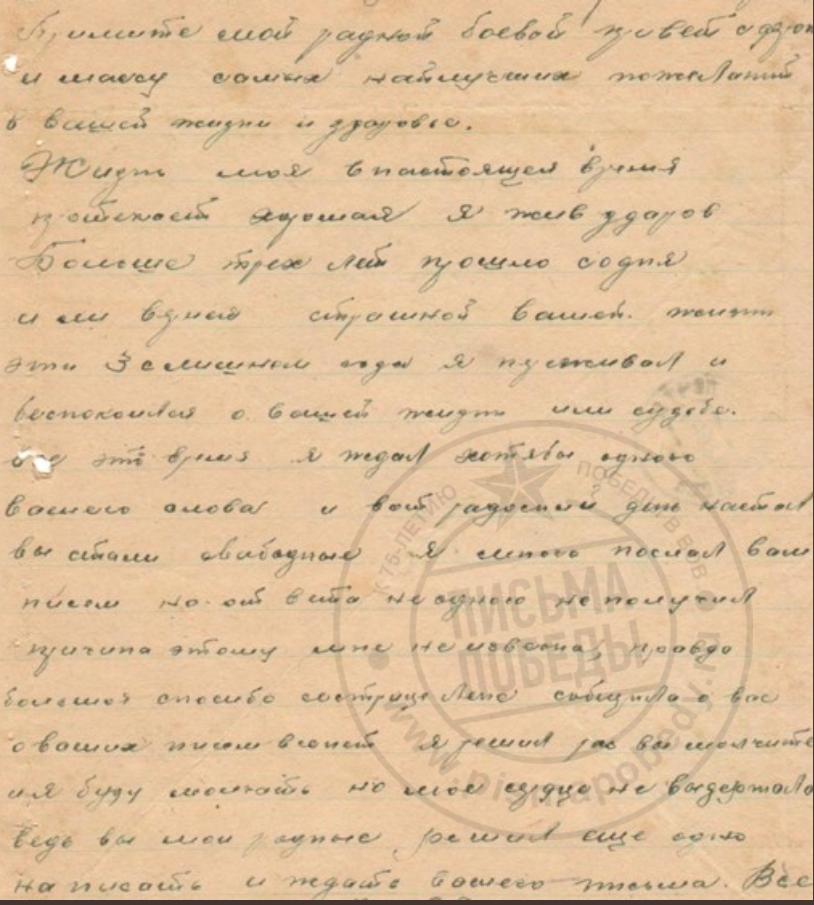 Примите мой радной боевой привет
и массу самых наилучших пожеланий
в вашей жизни и здоровье.
Жизнь моя внастоящея время
протекает хорошая я жив здаров
Больше трех лет прошло содня
страшной вашей жизни
эти 3 слишном года я пуживал и
беспокоился о вашей жизни или судьбе.
это время я ждал хотябы одново
вашего слова и вот радосный день настал
вы стали свабодные я много послал вам
писем но от вета не одново не получил
причина этому мне не извесна, правда
большое спосибо сестрице Лене сабщила о вас
о ваших писем я решил раз вы молчите
и я буду молчать но мое сердце не выдержало
ведь вы мои родные, решил еще одно
написать и ждать вашего письма. Все
К 75-ЛЕТИЮ ПОБЕДЫ В ВОВ
ПИСЬМА
ПОБЕДЫ
www.pismapobedy.ru